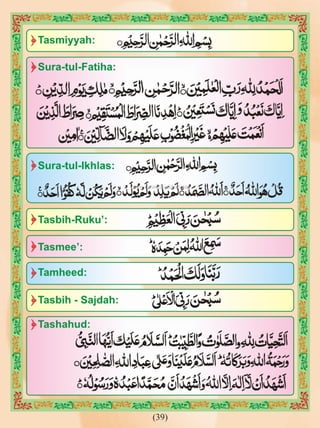 Tasmiyyah: بِسْمِ اللهِ الرَّحْمٰنِ الرَّحِيْمِ
Sura-tul-Fatiha:
اَلْحَمْدُ لِلّٰهِ رَبِّ الْعٰلَمِيْنَ الرَّحْمٰنِ الرَّحِيْمِ مٰلِكِ يَوْمِ الدِّيْنِ
اِيَّاكَ نَعْبُدُ وَاِيَّاكَ نَسْتَعِيْنُ اِهْدِنَا الصِّرَاطَ الْمُسْتَقِيْمَ صِرَاطَ الَّذِيْنَ
اَنْعَمْتَ عَلَيْهِمْ غَيْرِ الْمَغْضُوْبِ عَلَيْهِمْ وَلَا الضَّآلِّيْنَ اٰمِيْن
Sura-tul-Ikhlas: بِسْمِ اللهِ الرَّحْمٰنِ الرَّحِيْمِ
قُلْ هُوَ اللهُ اَحَدٌ اَللهُ الصَّمَدُ لَمْ يَلِدْ وَلَمْ يُوْلَدْ وَلَمْ يَكُنْ لَّهٗ كُفُوًا اَحَدٌ
Tasbih-Ruku’: سُبْحٰنَ رَبِّيَ الْعَظِيْمِ
Tasmee’: سَمِعَ اللهُ لِمَنْ حَمِدَهٗ
Tamheed: رَبَّنَا وَلَكَ الْحَمْدُ
Tasbih - Sajdah: سُبْحٰنَ رَبِّيَ الْاَعْلٰى
Tashahud:
اَلتَّحِيَّاتُ لِلّٰهِ وَالصَّلَوٰتُ وَالطَّيِّبٰتُ اَلسَّلَامُ عَلَيْكَ اَيُّهَا النَّبِيُّ
وَرَحْمَةُ اللهِ وَبَرَكَاتُهٗ اَلسَّلَامُ عَلَيْنَا وَعَلٰى عِبَادِ اللهِ الصّٰلِحِيْنَ
اَشْهَدُ اَنْ لَّا اِلٰهَ اِلَّا اللهُ وَاَشْهَدُ اَنَّ مُحَمَّدًا عَبْدُهٗ وَرَسُوْلُهٗ
(39)